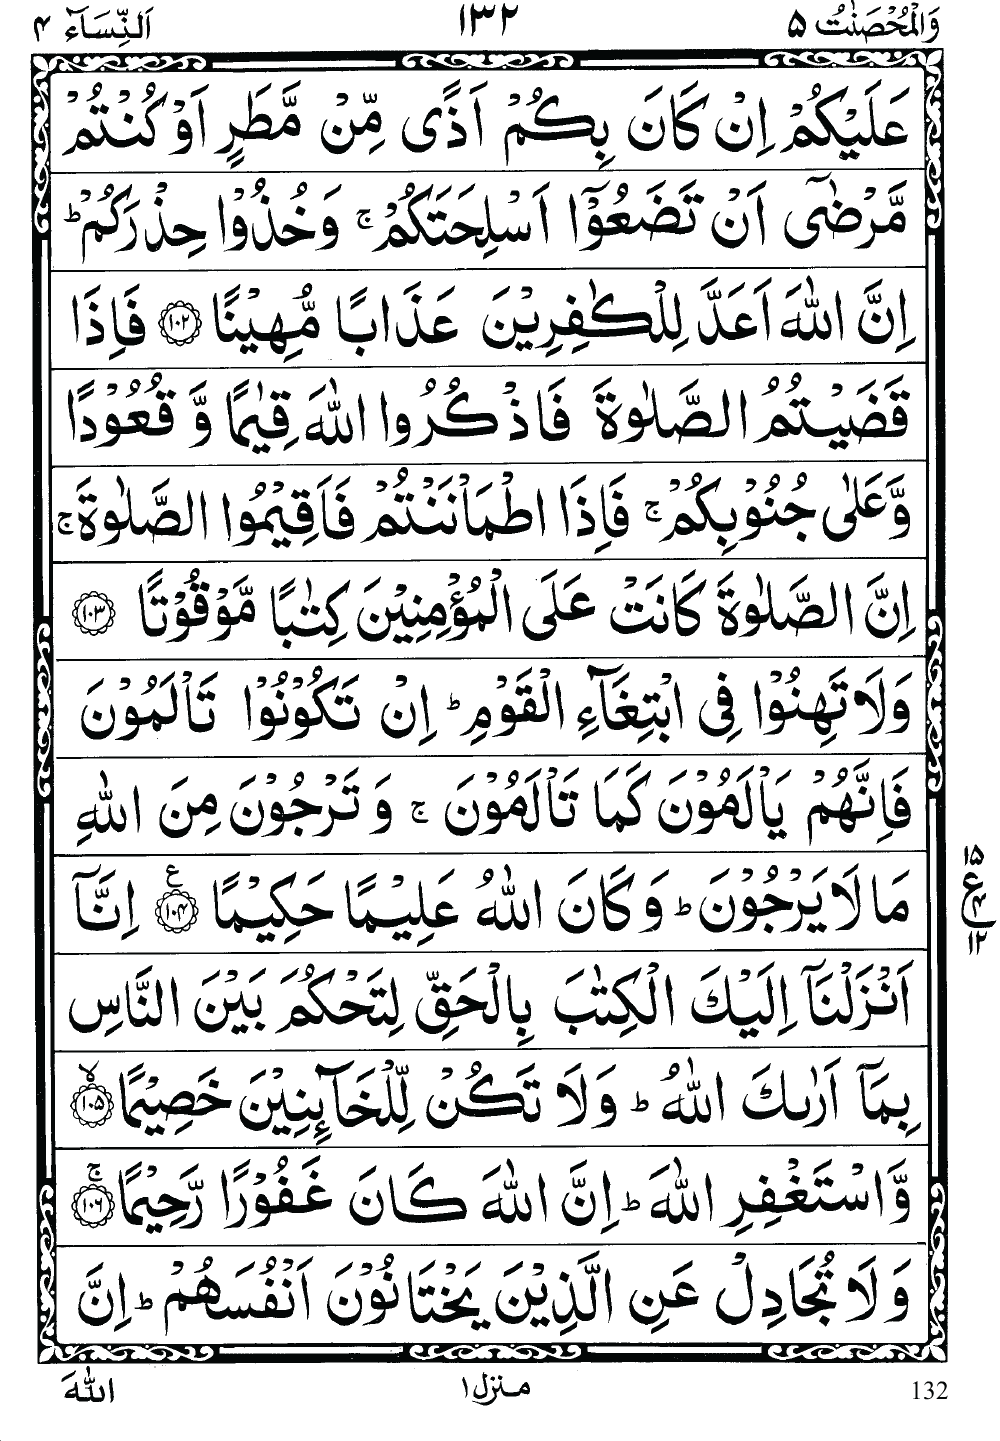 وَالْمُحْصَنٰتُ ۵ ۱۳۲ اَلنِّسَآءِ ۴
عَلَيْكُمْ اِنْ كَانَ بِكُمْ اَذًى مِّنْ مَّطَرٍ اَوْ كُنْتُمْ
مَّرْضٰٓى اَنْ تَضَعُوْٓا اَسْلِحَتَكُمْ ۚ وَ خُذُوْا حِذْرَكُمْ ؕ
اِنَّ اللّٰهَ اَعَدَّ لِلْكٰفِرِيْنَ عَذَابًا مُّهِيْنًا ۱۰۲ فَاِذَا
قَضَيْتُمُ الصَّلٰوةَ فَاذْكُرُوا اللّٰهَ قِيٰمًا وَّ قُعُوْدًا
وَّعَلٰى جُنُوْبِكُمْ ۚ فَاِذَا اطْمَاْنَنْتُمْ فَاَقِيْمُوا الصَّلٰوةَ ۚ
اِنَّ الصَّلٰوةَ كَانَتْ عَلَى الْمُؤْمِنِيْنَ كِتٰبًا مَّوْقُوْتًا ۱۰۳
وَلَا تَهِنُوْا فِى ابْتِغَآءِ الْقَوْمِ ؕ اِنْ تَكُوْنُوْا تَاْلَمُوْنَ
فَاِنَّهُمْ يَاْلَمُوْنَ كَمَا تَاْلَمُوْنَ ۚ وَ تَرْجُوْنَ مِنَ اللّٰهِ
مَا لَا يَرْجُوْنَ ؕ وَ كَانَ اللّٰهُ عَلِيْمًا حَكِيْمًا ۱۰۴ ع اِنَّآ
اَنْزَلْنَآ اِلَيْكَ الْكِتٰبَ بِالْحَقِّ لِتَحْكُمَ بَيْنَ النَّاسِ
بِمَآ اَرٰىكَ اللّٰهُ ؕ وَلَا تَكُنْ لِّلْخَآئِنِيْنَ خَصِيْمًا ۱۰۵ ۙ
وَّاسْتَغْفِرِ اللّٰهَ ؕ اِنَّ اللّٰهَ كَانَ غَفُوْرًا رَّحِيْمًا ۱۰۶ ۚ
وَلَا تُجَادِلْ عَنِ الَّذِيْنَ يَخْتَانُوْنَ اَنْفُسَهُمْ ؕ اِنَّ
۱۵
ع
۴
۱۲
132 منزل ۱ اللّٰهَ